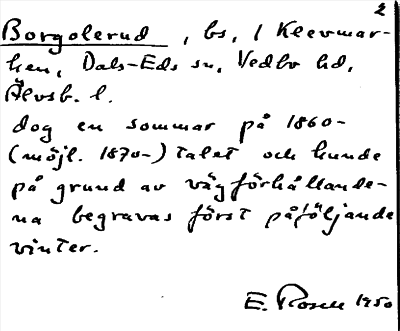 2
Borgolerud, bs, i Kleevmar-
ken, Dals-Eds sn, Vedbo hd,
Älvsb. l.
dog en sommar på 1860-
(möjl. 1870-) talet och kunde
på grund av vägförhållande-
na begravas först påföljande
vinter.
E. Rosell 1950